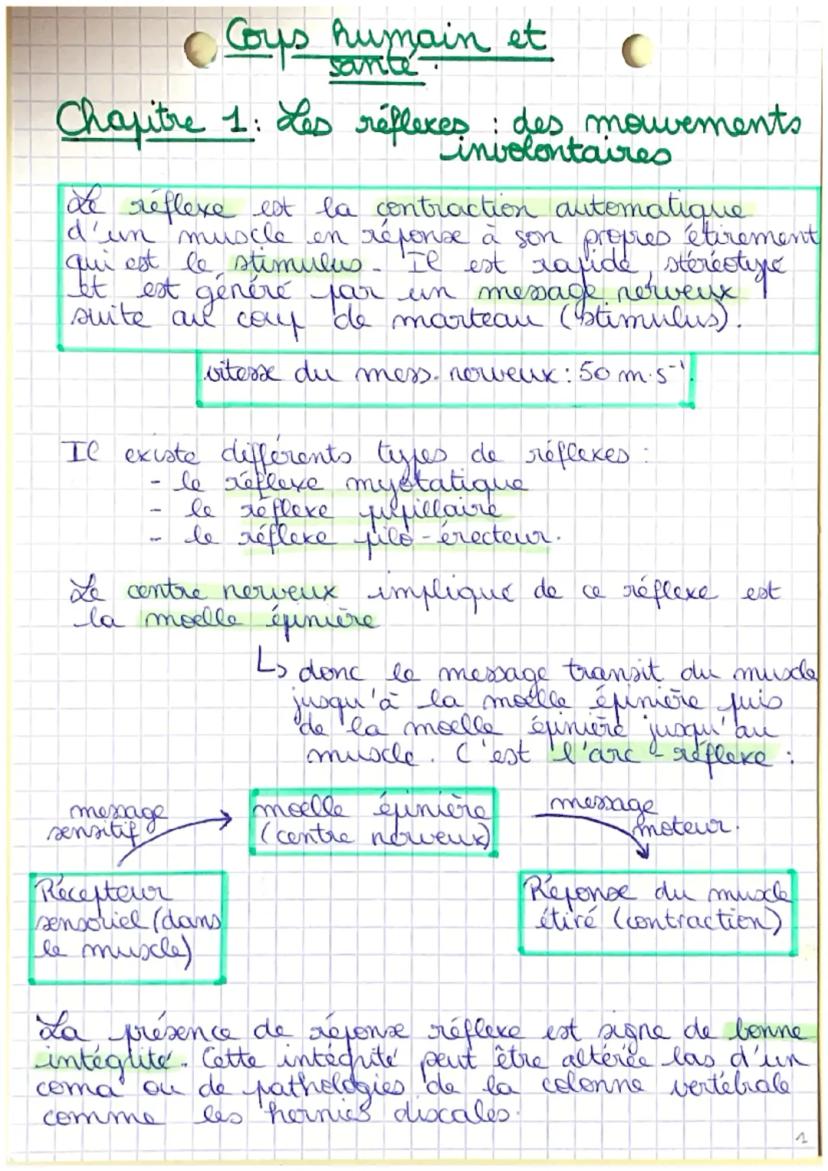 Corps humain et
santé.
Chapitre 1: Les réflexes : des mouvements
involontaires
Le réflexe est la contraction automatique
d'un muscle en réponse à son propres étirement
qui est le stimulus. Il est rapide, stéréotypé
et est généré par un message nerveux
suite au coup de marteau (stimulus).
vitesse du mess. nerveux : 50 m.s⁻¹.
Il existe différents types de réflexes :
- le réflexe myotatique
- le réflexe pupillaire
- le réflexe pilo-érecteur.
Le centre nerveux impliqué de ce réflexe est
la moelle épinière
↳ donc le message transit du muscle
jusqu'à la moelle épinière puis
de la moelle épinière jusqu'au
muscle. C'est l'arc-réflexe :
message
sensitif
moelle épinière
(centre nerveux)
message
moteur.
Récepteur
sensoriel (dans
le muscle)
Réponse du muscle
étiré (contraction)
La présence de réponse réflexe est signe de bonne
intégrité. Cette intégrité peut être altérée las d'un
coma ou de pathologies de la colonne vertébrale
comme les hernies discales.
1